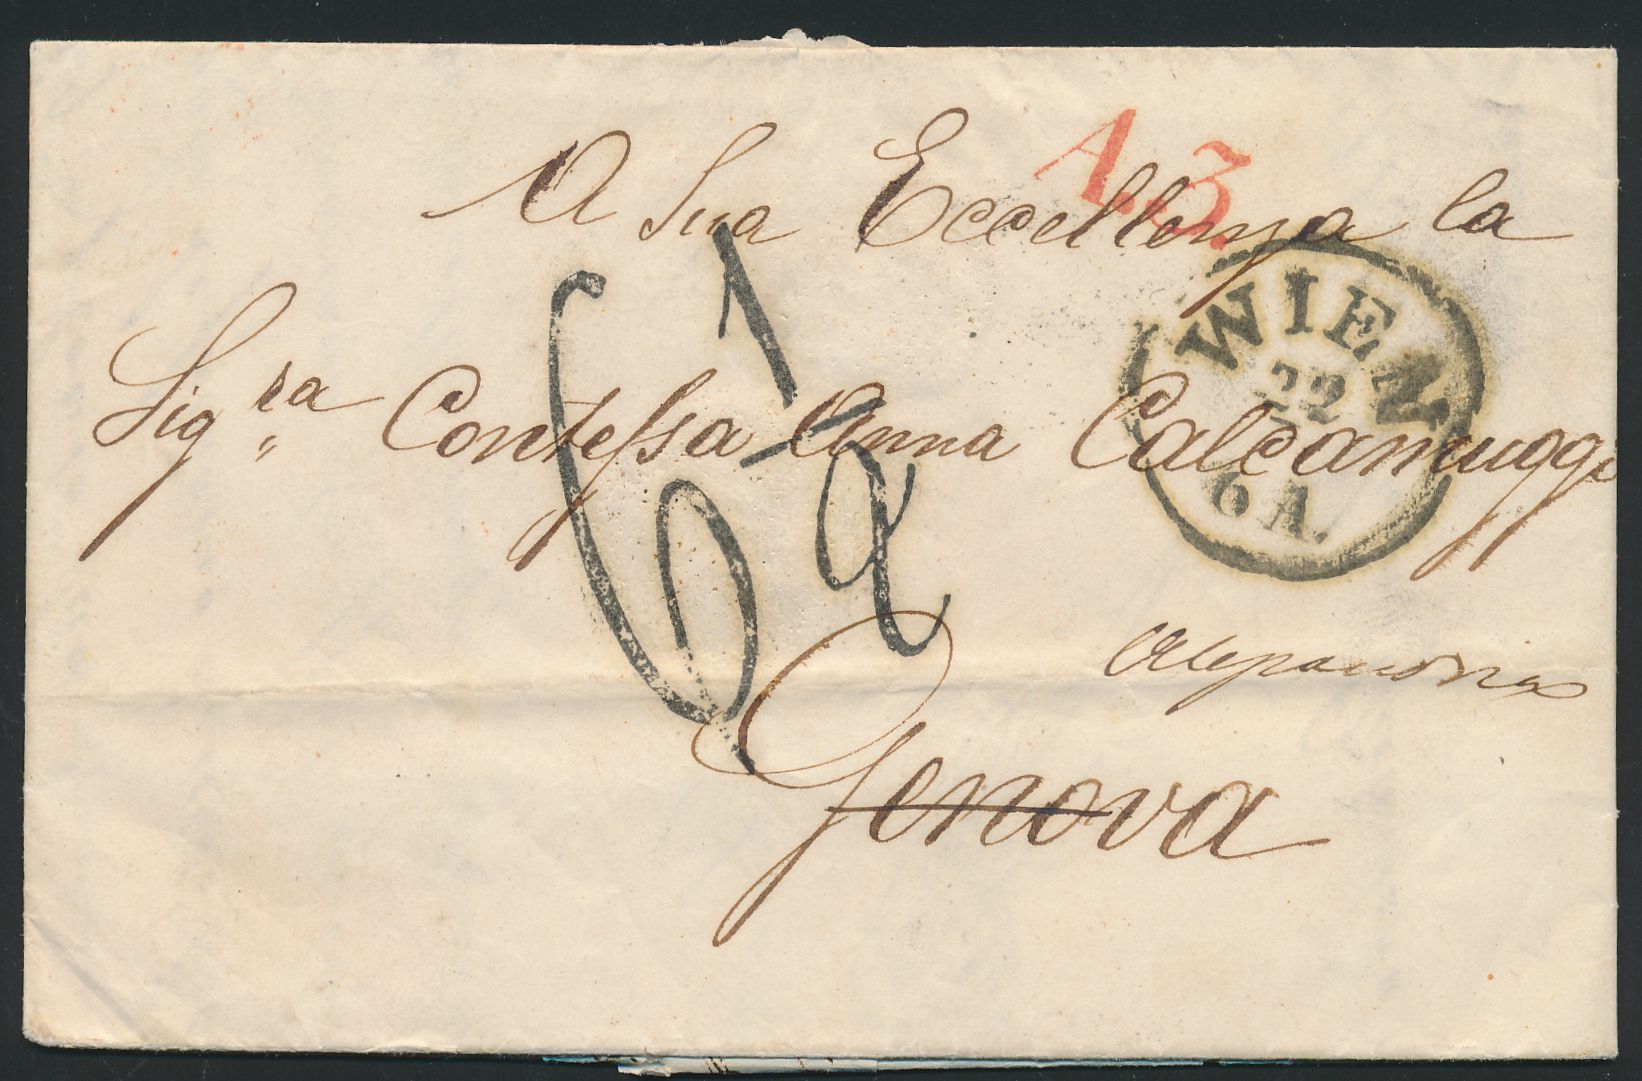 A. 3.
A Sua Eccellenza la
WIEN
22
6 A.
Sig.ra Contessa Anna
6 1/2
Alessandria
Genova